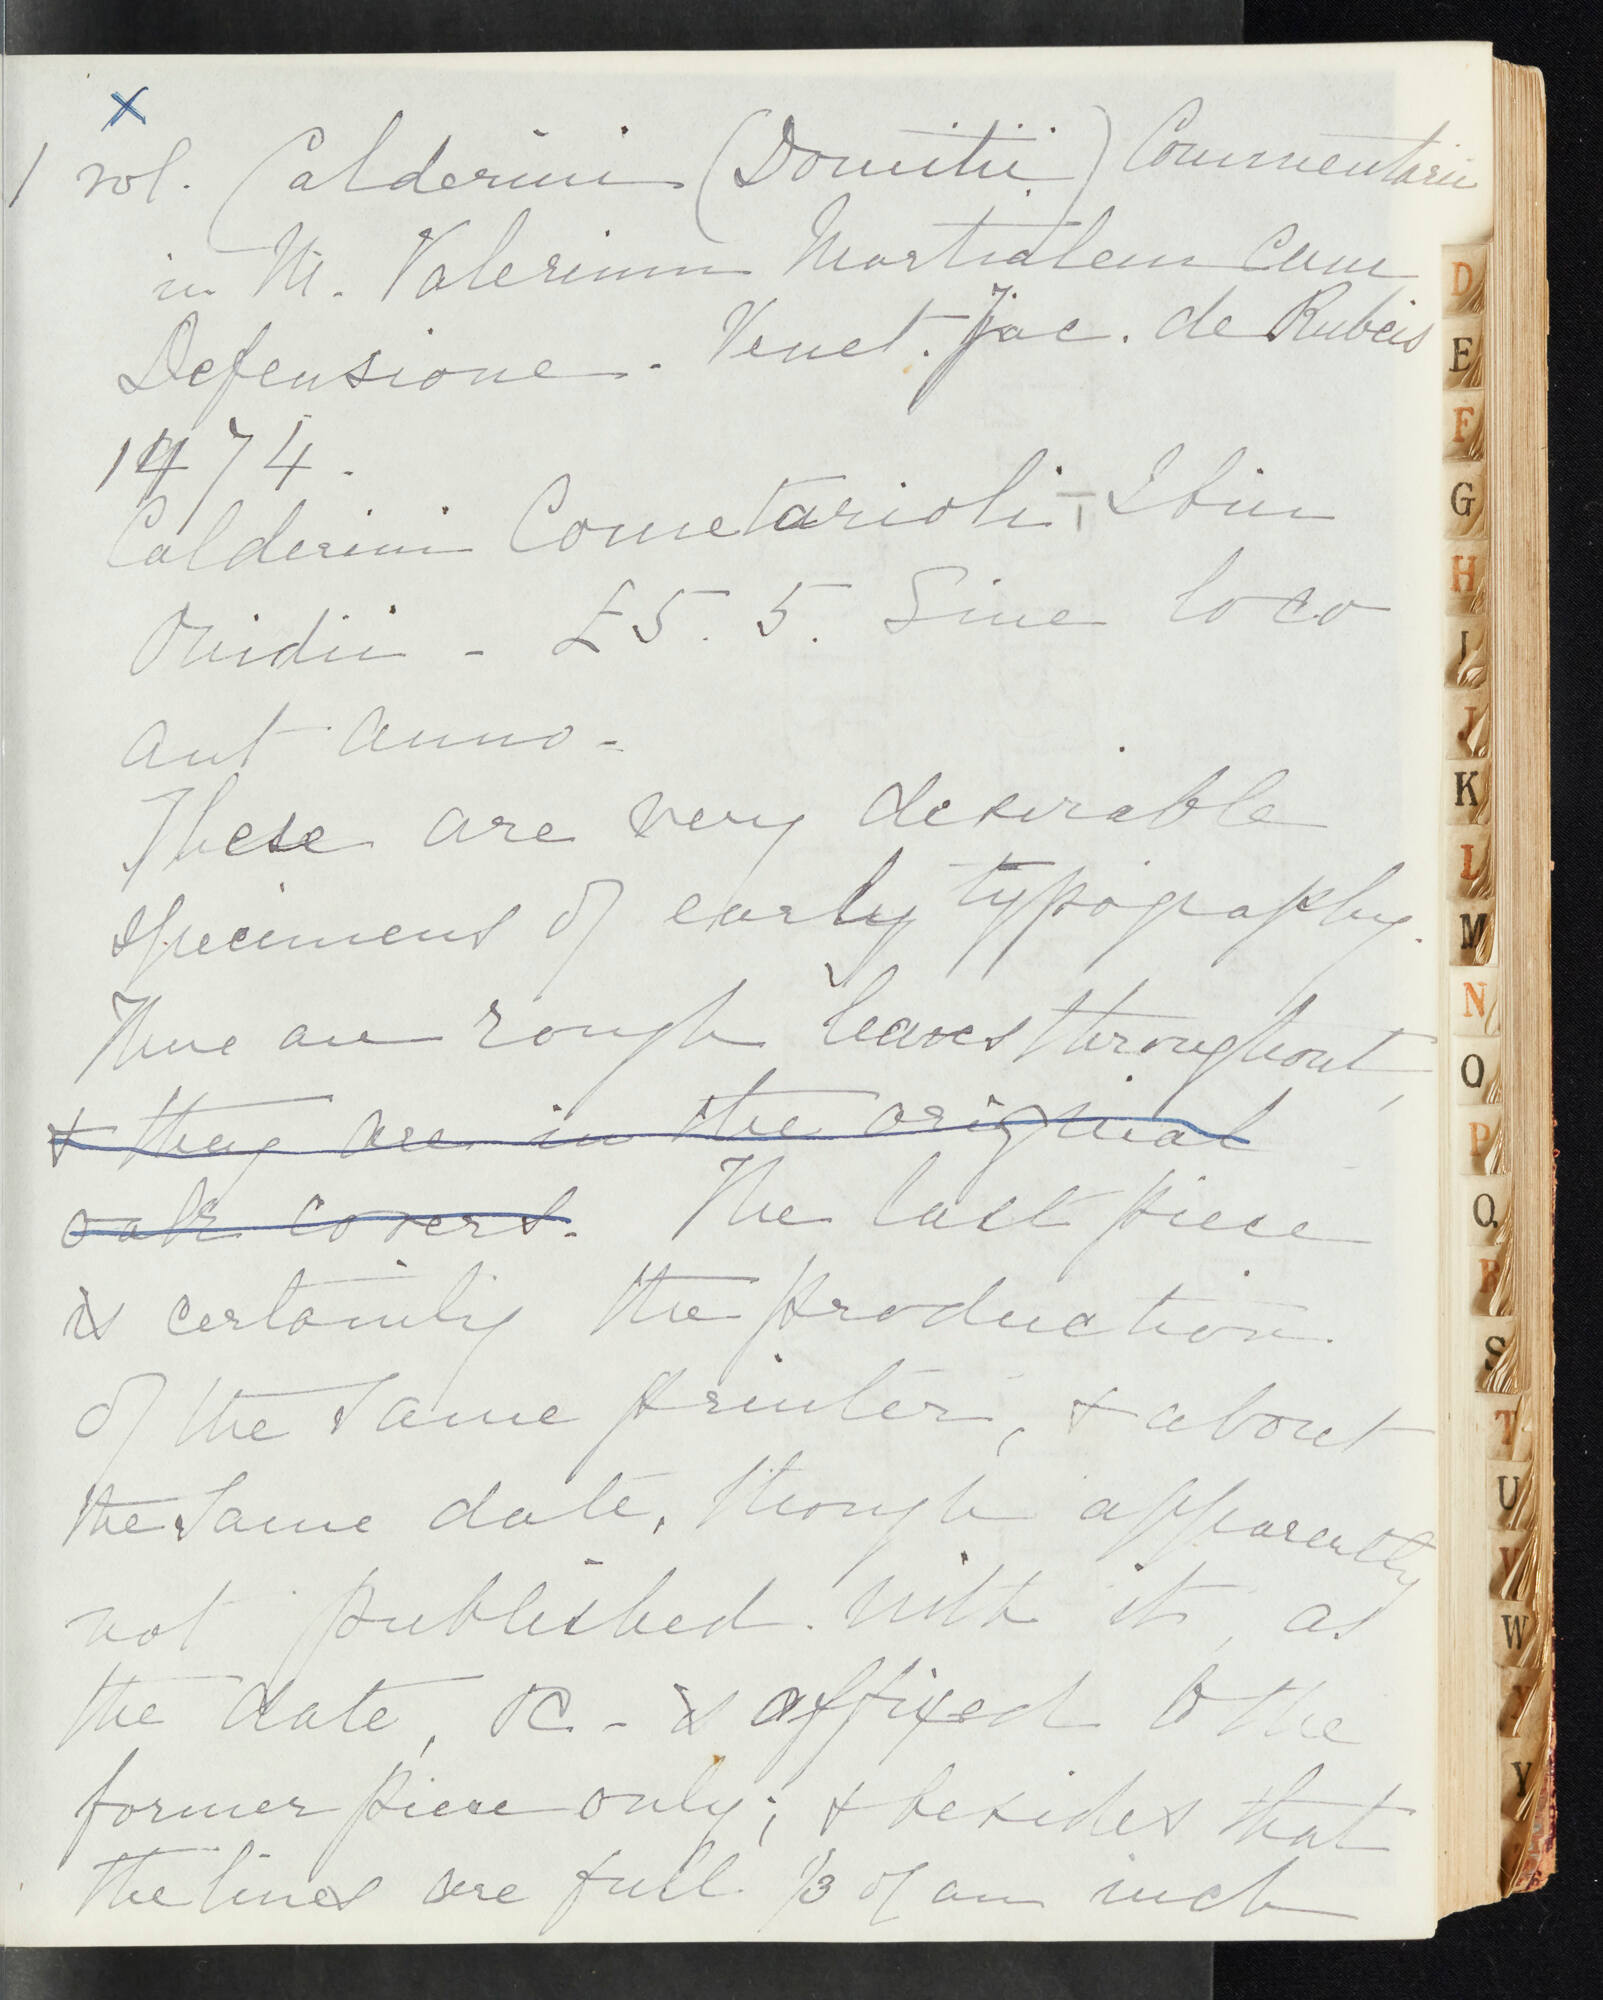 x
1 vol. Calderini (Domitii) Commentarii
in M. Valerium Martialem cum
Defensione. Venet. Jac. de Rubeis
1474.
Calderini Cometarioli I Ibin
Ovidii - £5. 5. Sine loco
aut anno -
These are very desirable
specimens of early typography.
There are rough leaves throughout,
& they are in the original
oak covers. The last piece
is certainly the production
of the same printer, & about
the same date, though apparently
not published with it, as
the date, &c - is affixed to the
former piece only; & besides that
the lines are full 1/3 of an inch
D
E
F
G
H
I
J
K
L
M
N
O
P
Q
R
S
T
U
V
W
X
Y